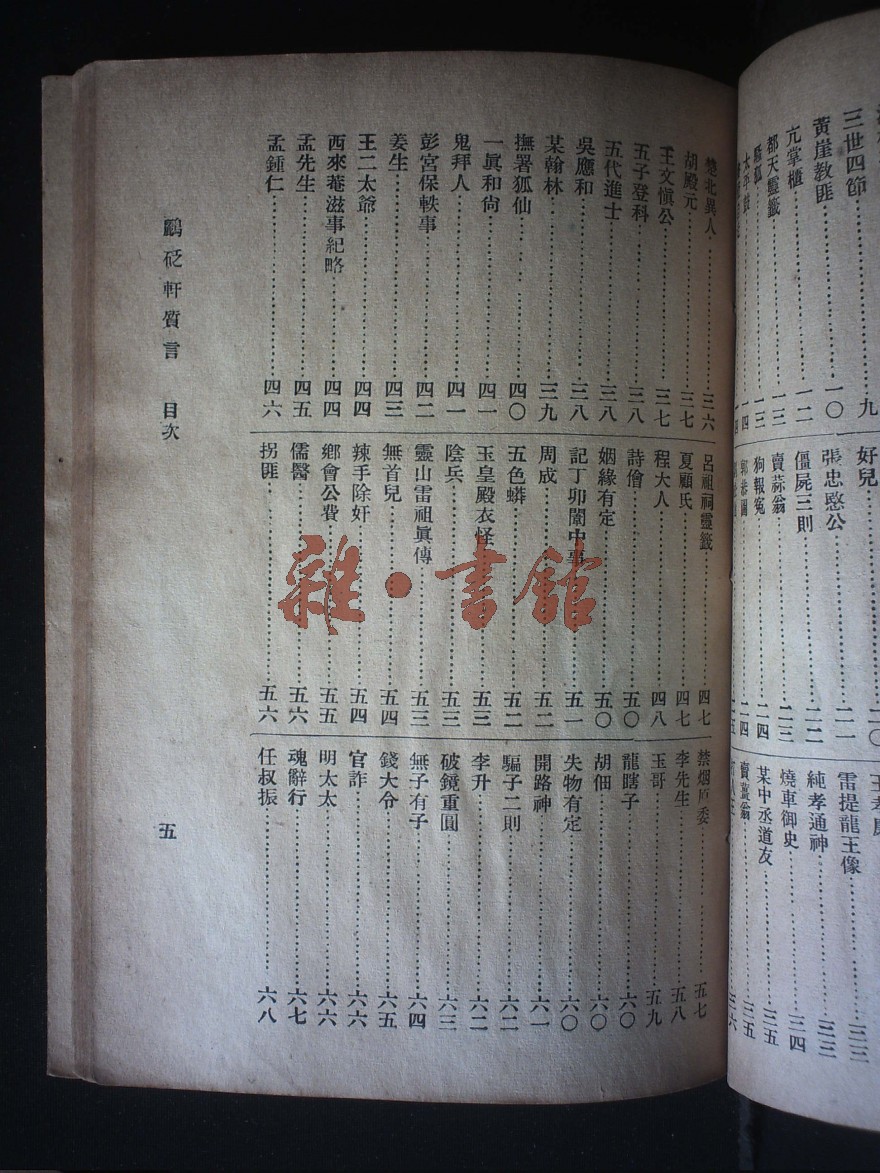 三世四節……九
黃崖教匪……一〇
亢掌櫃……一二
都天靈籤……一三
好兒……二〇
張忠愍公……二一
僵屍三則……二二
賣蒜翁……二三
狗報冤……二四
雷提龍王像……三三
純孝通神……三三
燒車御史……三四
某中丞道友……三五
賣薑翁……三五
楚北異人……三六
胡殿元……三七
王文慎公……三七
五子登科……三八
五代進士……三八
吳應和……三八
某翰林……三九
撫署狐仙……四〇
一眞和尙……四一
鬼拜人……四一
彭宮保軼事……四二
姜生……四三
王二太爺……四四
西來菴滋事紀略……四四
孟先生……四五
孟鍾仁……四六
呂祖祠靈籤……四七
夏顧氏……四七
程大人……四八
詩僧……五〇
姻緣有定……五〇
記丁卯闈中事……五一
周成……五二
五色蟒……五二
玉皇殿衣怪……五三
陰兵……五三
靈山雷祖眞傳……五三
無首兒……五四
辣手除奸……五四
鄉會公費……五五
儒醫……五六
拐匪……五六
禁烟原委……五七
李先生……五八
玉哥……五九
龍瞎子……六〇
胡佃……六〇
失物有定……六〇
開路神……六一
騙子二則……六二
李升……六二
破鏡重圓……六三
無子有子……六四
錢大令……六五
官詐……六六
明太太……六六
魂辭行……六七
任叔振……六八
鸝砭軒質言 目次 五
雜·書館